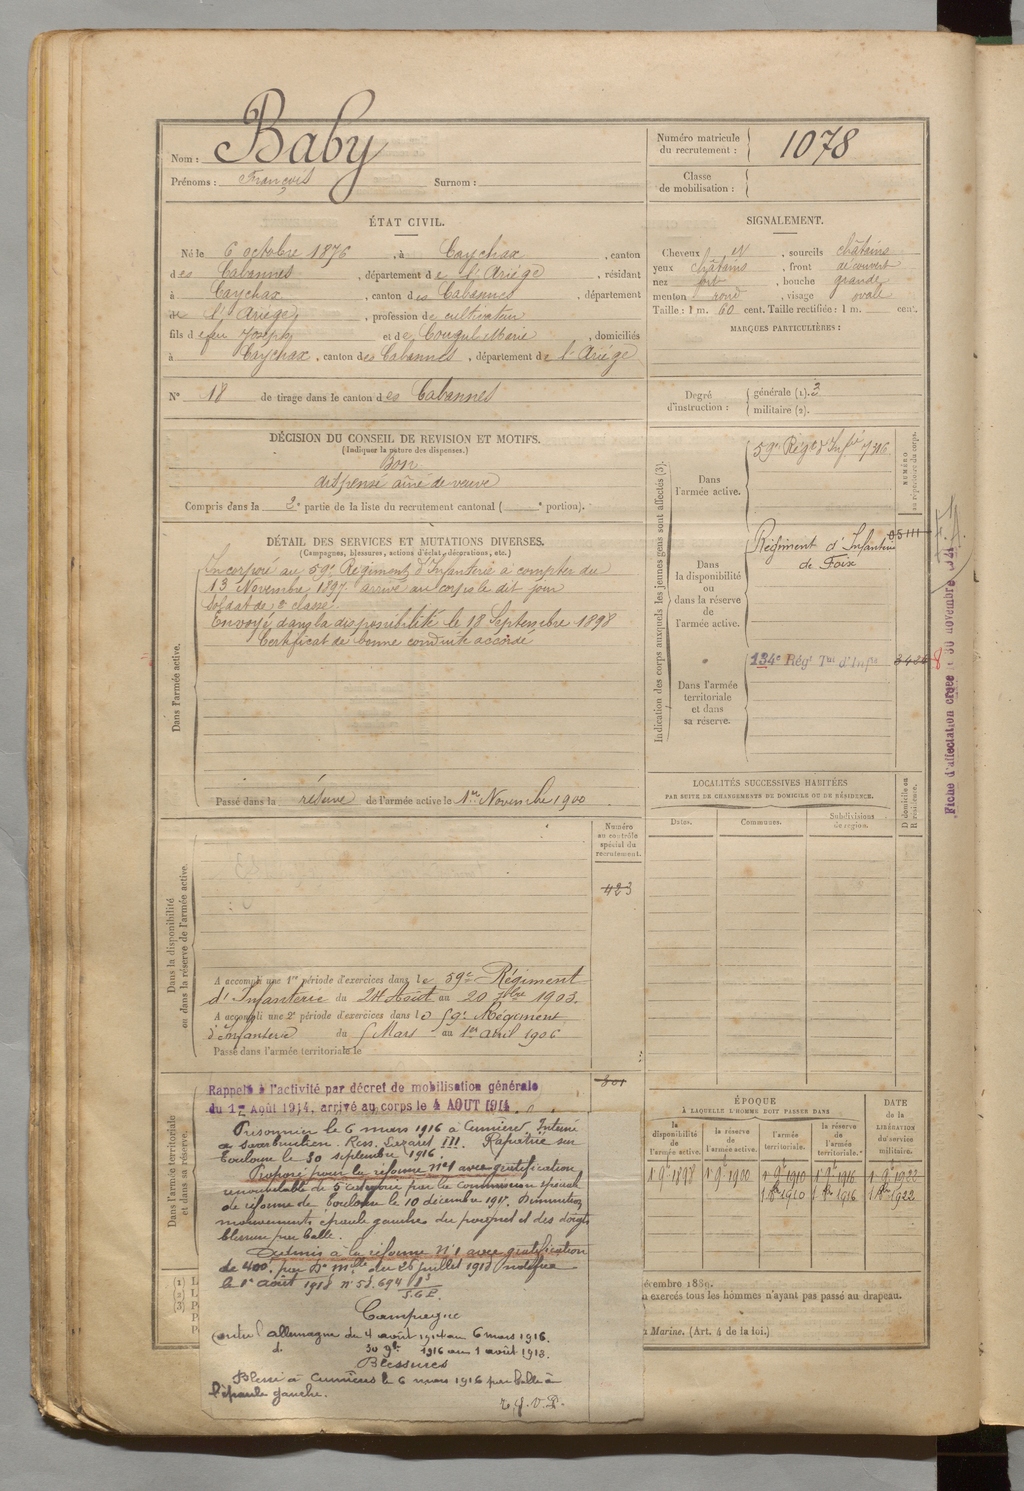 Nom : Baby
Prénoms : François Surnom :
Numéro matricule du recrutement : 1078
Classe de mobilisation :
ÉTAT CIVIL.
Né le 6 octobre 1876, à Caychax, canton
des Cabannes, département de l'Ariège, résidant
à Caychax, canton des Cabannes, département
de l'Ariège, profession de cultivateur
fils de feu Joseph et de Cougul Marie, domiciliés
à Caychax, canton des Cabannes, département de l'Ariège
N° 18 de tirage dans le canton des Cabannes
SIGNALEMENT.
Cheveux N, sourcils châtains
yeux châtains, front découvert
nez fort, bouche grande
menton rond, visage ovale
Taille : 1 m. 60 cent. Taille rectifiée : 1 m. cent.
MARQUES PARTICULIÈRES :
Degré d'instruction : générale (1). 3
militaire (2).
DÉCISION DU CONSEIL DE REVISION ET MOTIFS.
(Indiquer la nature des dispenses.)
Bon
dispensé aîné de veuve
Compris dans la 2e partie de la liste du recrutement cantonal ( e portion).
DÉTAIL DES SERVICES ET MUTATIONS DIVERSES.
(Campagnes, blessures, actions d'éclat, décorations, etc.)
Dans l'armée active.
Incorporé au 59e Régiment d'Infanterie à compter du
13 Novembre 1897 arrivé au corps le dit jour
soldat de 2e classe.
Envoyé dans la disponibilité le 18 Septembre 1898
Certificat de bonne conduite accordé
Passé dans la réserve de l'armée active le 1er Novembre 1900
Indication des corps auxquels les jeunes gens sont affectés (3).
NUMÉRO au répertoire du corps.
Dans l'armée active.
59e Régt d'Infie 7316
Dans la disponibilité ou dans la réserve de l'armée active.
Régiment d'Infanterie 05111
de Foix
Dans l'armée territoriale et dans sa réserve.
134e Régt Tal d'Infie
Fiche d'affectation créée le 30 novembre
LOCALITÉS SUCCESSIVES HABITÉES
PAR SUITE DE CHANGEMENTS DE DOMICILE OU DE RÉSIDENCE.
Dates. Communes. Subdivisions de région. D domicile ou R résidence.
Dans la disponibilité ou dans la réserve de l'armée active.
Numéro au contrôle spécial du recrutement.
423
A accompli une 1re période d'exercices dans le 59e Régiment
d'Infanterie du 24 Août au 20 7bre 1903.
A accompli une 2e période d'exercices dans le 59e Régiment
d'Infanterie du 5 Mars au 1er avril 1906
Passé dans l'armée territoriale le
Dans l'armée territoriale et dans sa réserve.
Rappelé à l'activité par décret de mobilisation générale
du 1er Août 1914, arrivé au corps le 4 AOUT 1914.
Prisonnier le 6 mars 1916 à Cumières, Interné
à Saarbrucken. Res. Lazaret III. Rapatrié sur
Toulouse le 30 septembre 1916.
Proposé pour la réforme n°1 avec gratification
renouvelable de 5e catégorie par la commission spéciale
de réforme de Toulouse le 10 décembre 1917. Diminution
mouvements épaule gauche du poignet et des doigts
blessure par balle.
Admis à la réforme N°1 avec gratification
de 400f par Don mlle du 26 juillet 1918 notifiée
le 1er août 1918 n° 53.694
Campagne
contre l'allemagne du 4 août 1914 au 6 mars 1916.
d° 30 9bre 1916 au 1 août 1918.
Blessures
Blessé à Cumières le 6 mars 1916 par balle à
l'épaule gauche.
ÉPOQUE
À LAQUELLE L'HOMME DOIT PASSER DANS
la disponibilité de l'armée active. la réserve de l'armée active. l'armée territoriale. la réserve de l'armée territoriale.
DATE de la LIBÉRATION du service militaire.
1 9bre 1898 1 9bre 1900 1 9bre 1910 1 9bre 1916 1 9bre 1922
1 8bre 1910 1 8bre 1916 1 8bre 1922
écembre 1889.
n exercés tous les hommes n'ayant pas passé au drapeau.
Marine. (Art. 4 de la loi.)